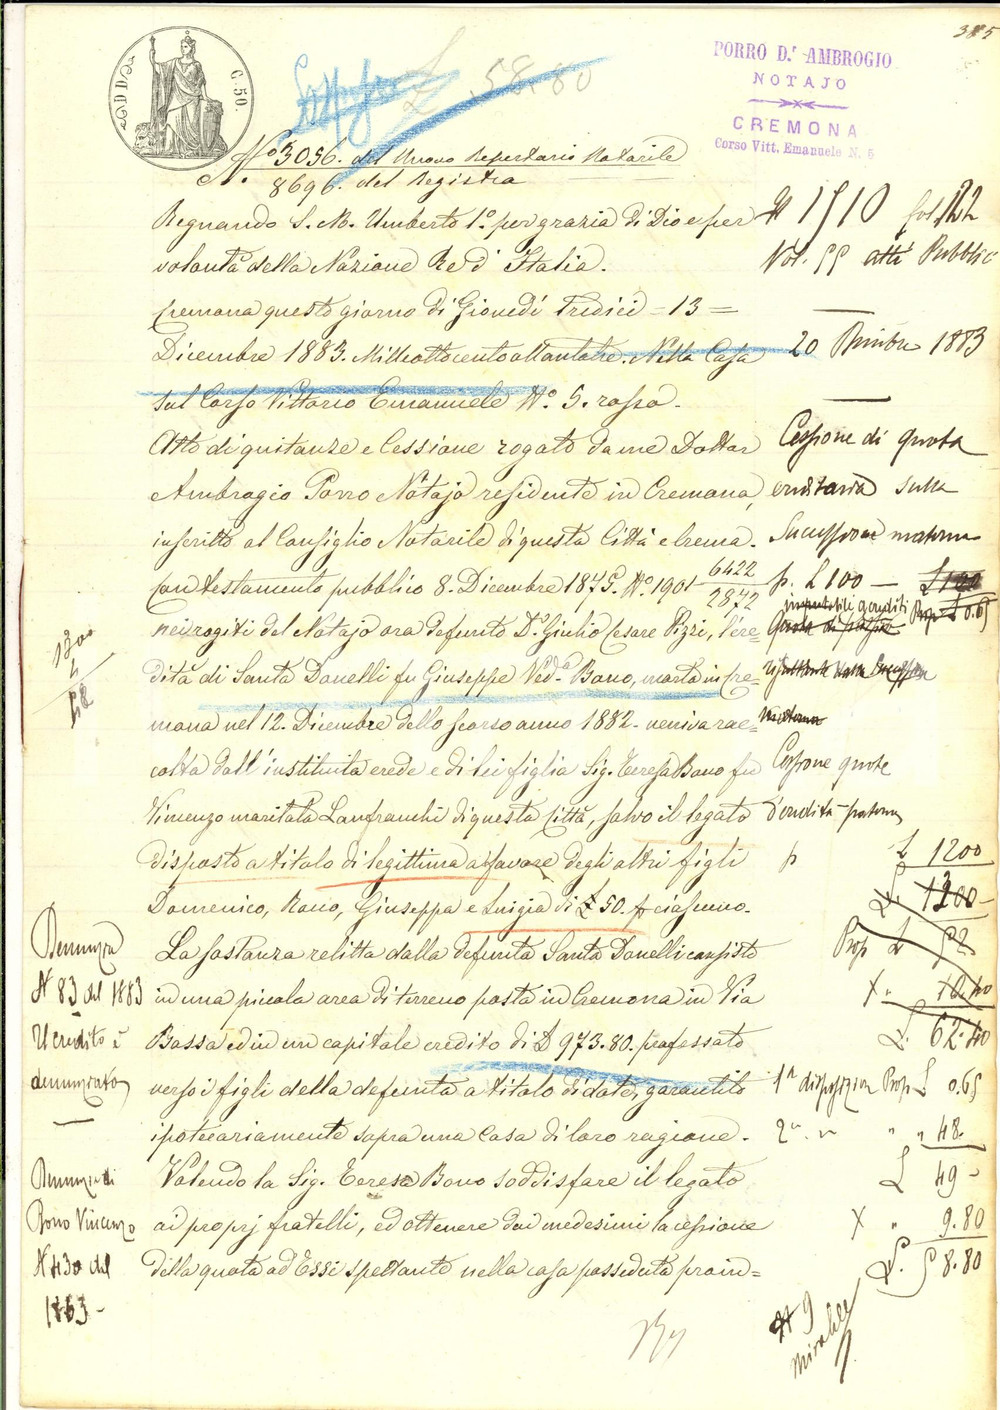 385
C. 50.
58.80
PORRO D.r AMBROGIO
NOTAJO
CREMONA
Corso Vitt. Emanuele N. 5
N.° 3056. del Nuovo Repertorio Notarile
N. 8696. del Registro
Regnando S. M. Umberto 1.° per grazia di Dio e per
volontà della Nazione Re d'Italia.
Cremona questo giorno di Giovedì Tredici = 13 =
Dicembre 1883. Milleottocentoottantatre. Nella Casa
sul Corso Vittorio Emanuele N.° 5. rosso.
Atto di quitanze e Cessione rogato da me Dottor
Ambrogio Porro Notajo residente in Cremona,
inscritto al Consiglio Notarile di questa Città e Crema.
Con testamento pubblico 8. Dicembre 1875. N.° 1901 6422/2872
nei rogiti del Notajo ora defunto D.r Giulio Cesare Pizzi, l'ere=
dità di Santa Donelli fu Giuseppe Ved.a Bono, morta in Cre=
mona nel 12. Dicembre dello scorso anno 1882. veniva rac=
colta dall'instituita erede e di lei figlia Sig. Teresa Bono fu
Vincenzo maritata Lanfranchi di questa Città, salvo il legato
disposto a titolo di legittima a favore degli altri figli
Domenico, Rocco, Giuseppa e Luigia di £ 50. p ciascuno.
La sostanza relitta dalla defunta Santa Donelli consiste
in una piccola area di terreno posta in Cremona in Via
Bassa ed in un capitale credito di £ 973.80. professato
verso i figli della defunta a titolo di dote, garantito
ipotecariamente sopra una casa di loro ragione.
Volendo la Sig. Teresa Bono soddisfare il legato
ai proprj fratelli, ed ottenere dai medesimi la cessione
della quota ad Essi spettante nella casa posseduta proin=
N 1510 fol. 122
Vol. 55 atti Pubblici
20 Dicembre 1883
Cessione di quota
ereditaria sulla
Successione materna
p. £ 100 — £ 100
Prop £ 0.65
Quota di
materna
Cessione quote
d'eredità paterna
p £ 1200
1300
Prop £ 52
× " 10.40
£. 62.40
1a disposizione Prop £ 0.65
2a " " " 48.
£ 49 -
× " 9.80
£. 58.80
N 9
Mirabile
1200
4
48
Denunzia
N 83 del 1883
Il credito è
denunziato
Denunzia di
Bono Vincenzo
N 430 del
1863 -